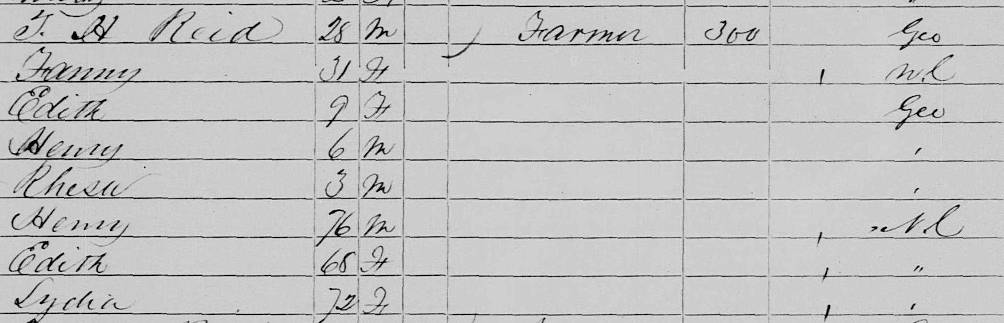 T. H Reid 28 M Farmer 300 Geo
Fanny 31 F N.C
Edith 9 F Geo
Henry 6 M "
Rhesa 3 M "
Henry 76 M N.C
Edith 68 F "
Lydia 72 F "